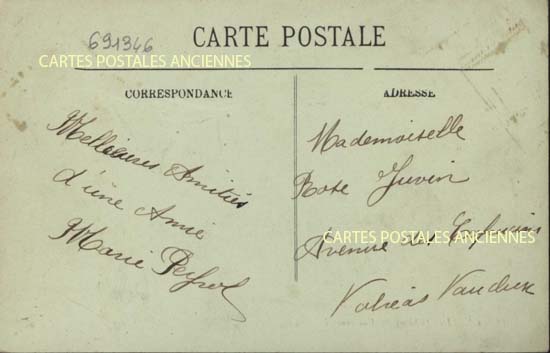 691346
CARTE POSTALE
CARTES POSTALES ANCIENNES
CORRESPONDANCE
Meilleures Amitiés
d'une Amie
Marie
ADRESSE
Mademoiselle
Rose Juvin
Avenue des
CARTES POSTALES ANCIENNES
Valréas Vaucluse